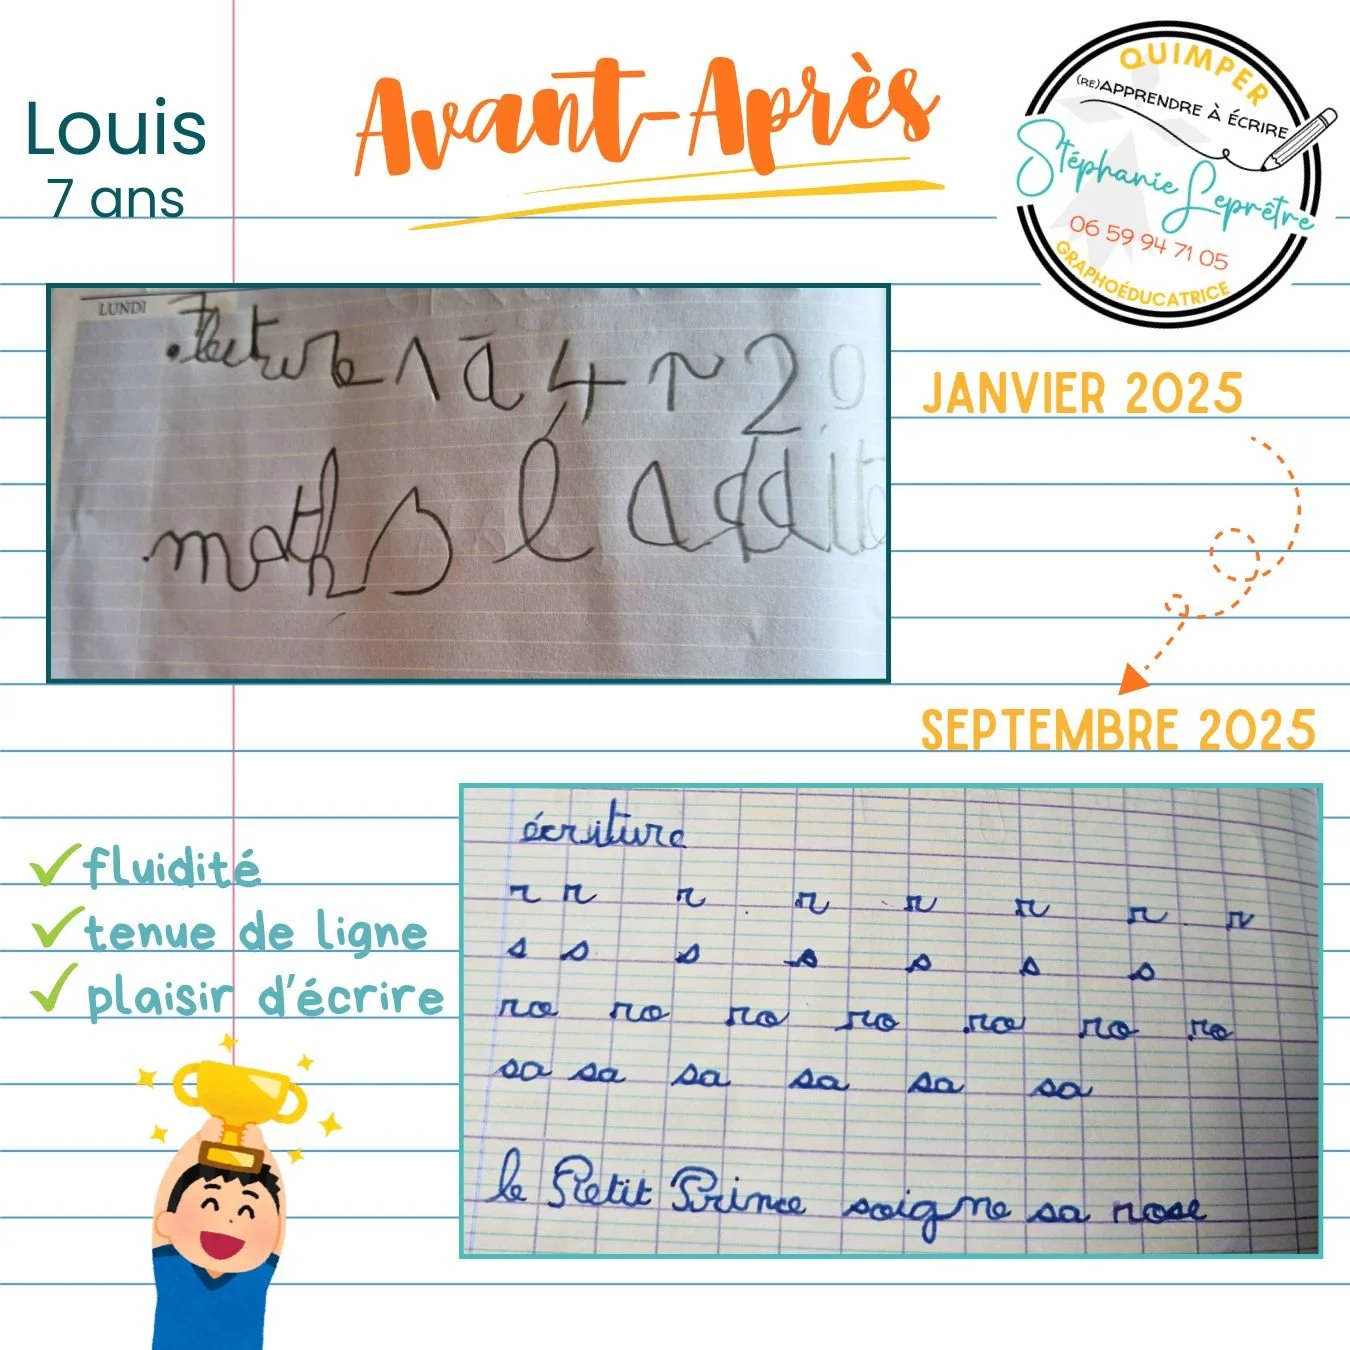 Louis
7 ans
Avant-Après
QUIMPER
(RE)APPRENDRE À ÉCRIRE
Stéphanie Leprêtre
06 59 94 71 05
GRAPHOÉDUCATRICE
LUNDI
lecture 1 à 4 r 20
maths l addit
JANVIER 2025
SEPTEMBRE 2025
fluidité
tenue de ligne
plaisir d'écrire
écriture
r r r r r r r r
s s s s s s s
ro ro ro ro ro ro ro
sa sa sa sa sa sa
le Petit Prince soigne sa rose